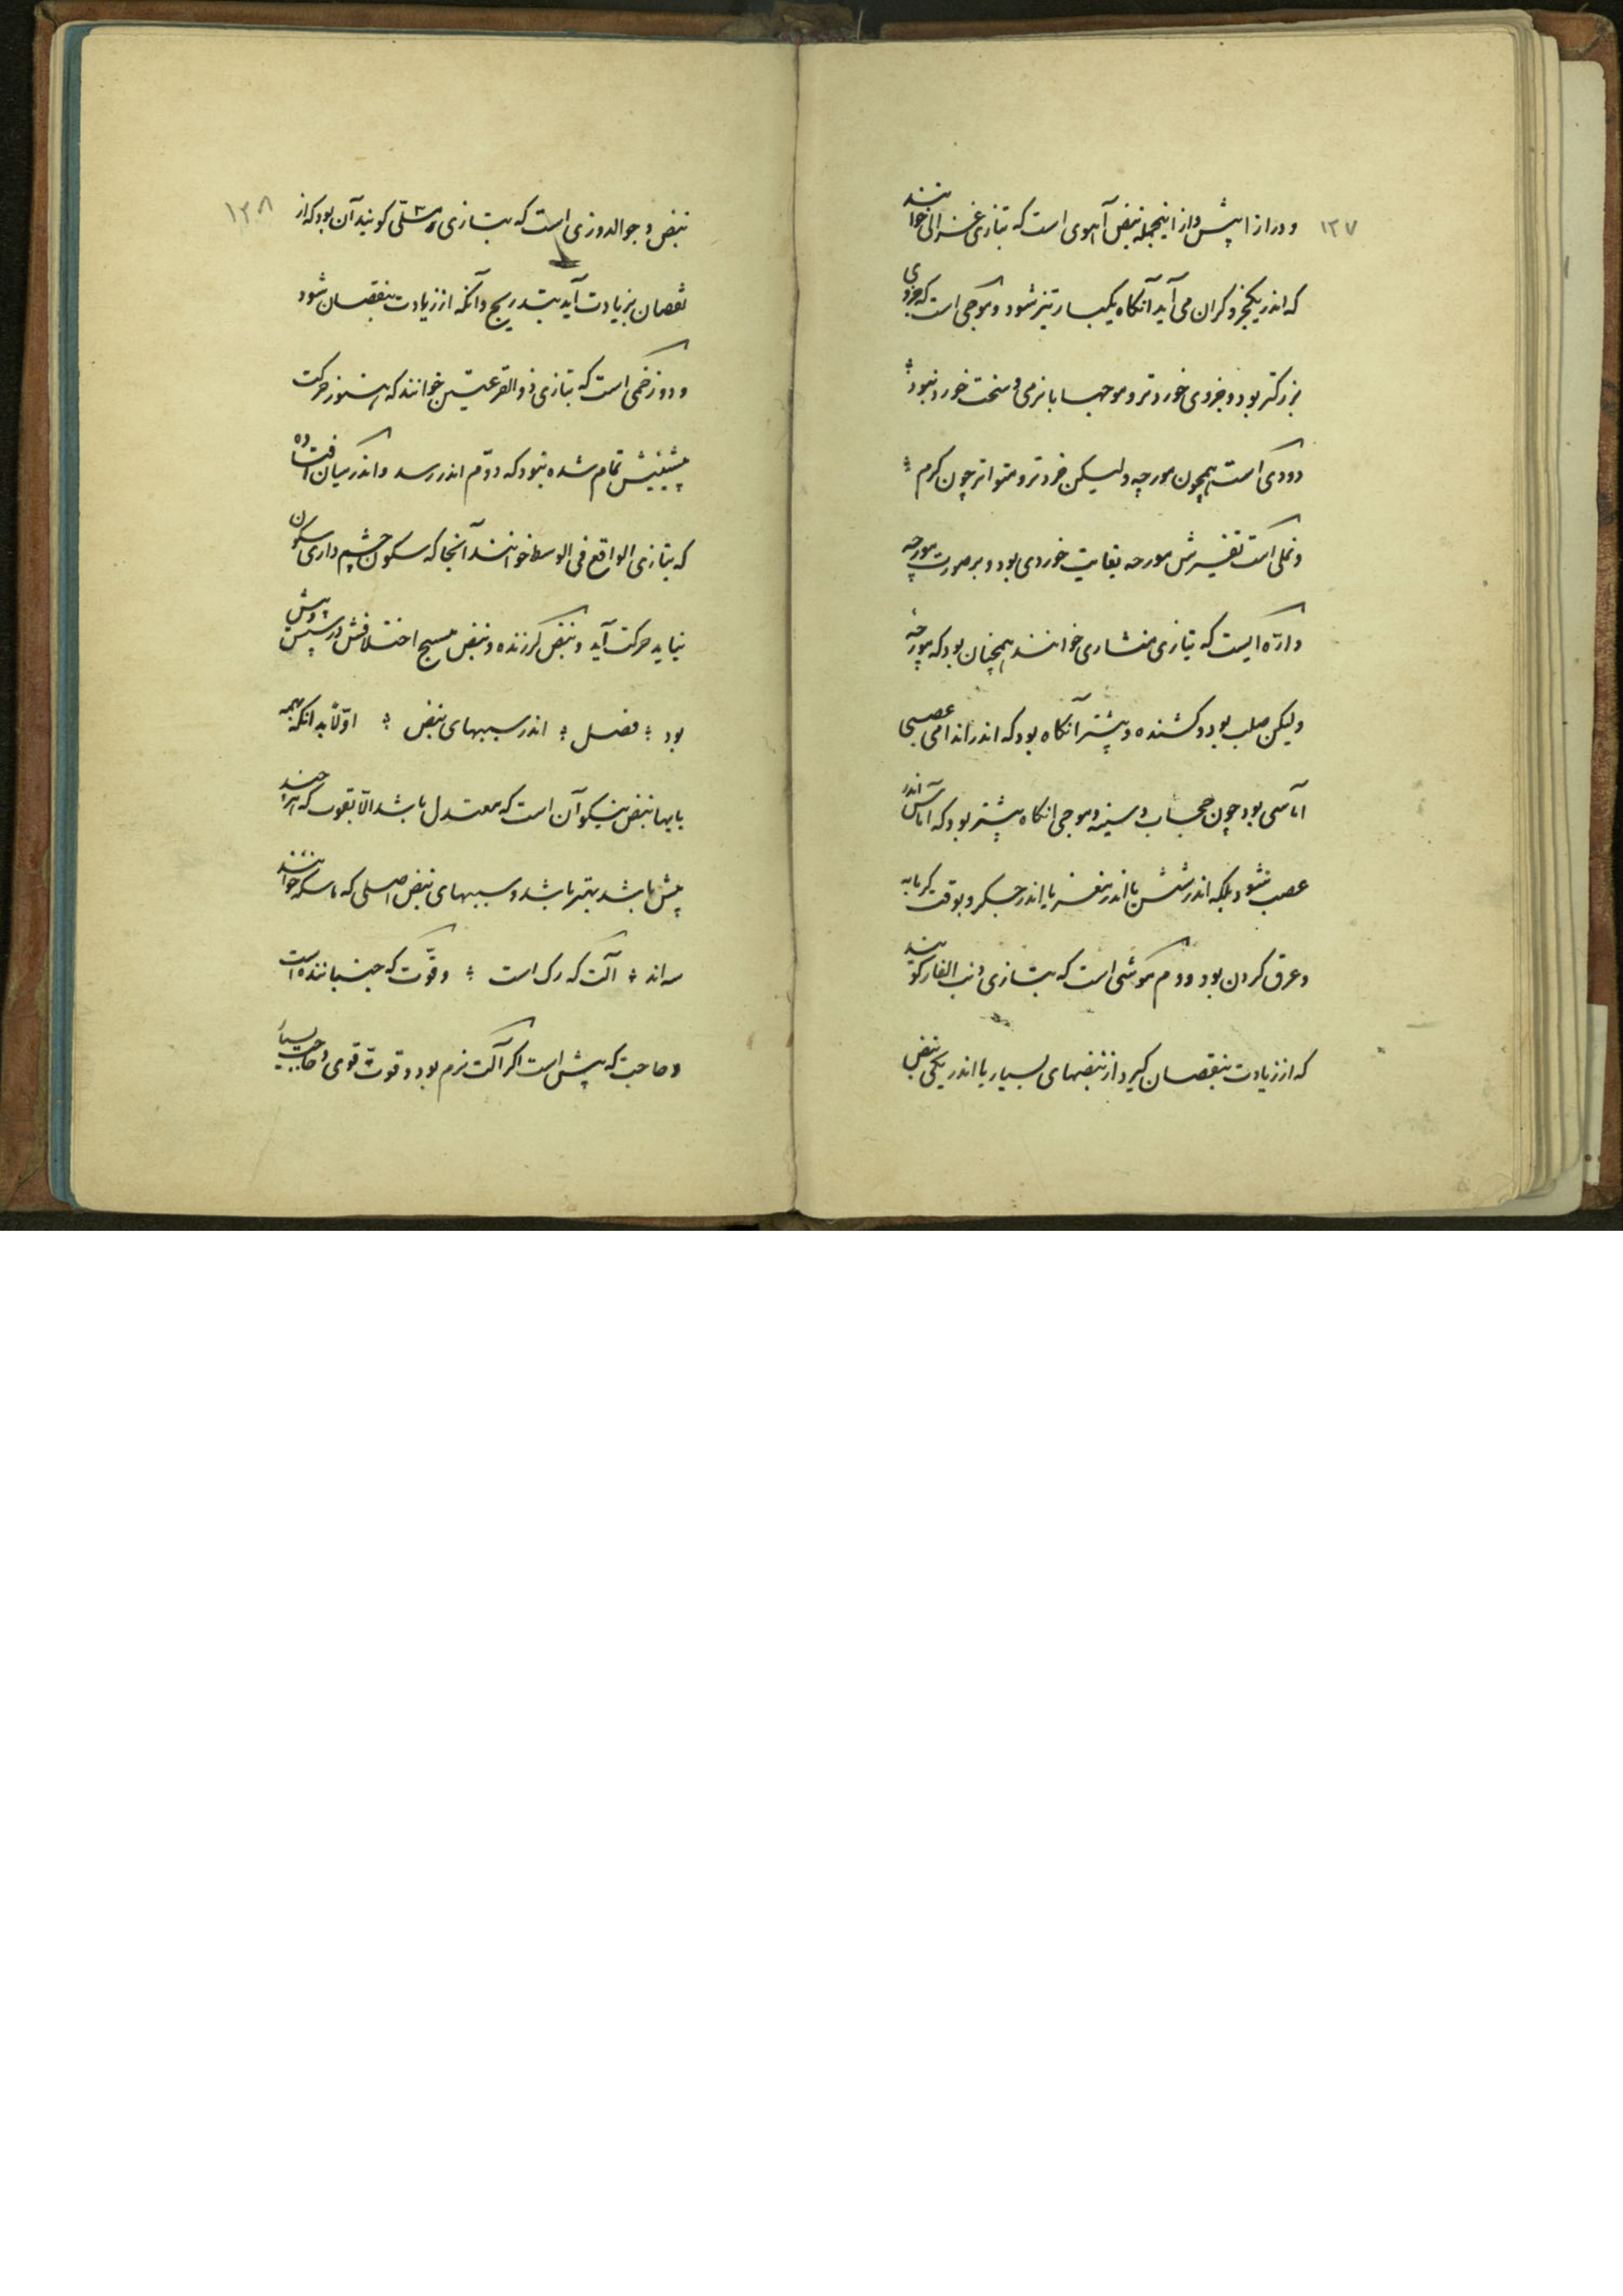 ۱۲۷
و دراز اپیش و از اینجمله نبض آهوی است که بتازی غزالی خوانند
که اندر یکجزو کران می آید آنکاه یکبار تیز شود و موجی است که جزوی
بزرکتر بود و جزوی خوردتر و موجها با نرمی و سخت خورد نبود
دودی است همچون مورچه ولیکن خردتر و متواتر چون کرم
و نملی است تفسیرش مورچه بغایت خوردی بود و بر صورت مورچه
و ارّه ایست که بتازی منشاری خوانند همچنان بود که موجی
ولیکن صلب بود و کشنده و بیشتر آنکاه بود که اندر اندامی عصبی
آماسی بود چون حجاب و سینه و موجی انکاه بیشتر بود که آماس اندر
عصب نشود بلکه اندر شش یا اندر مغز یا اندر جکر و بوقت کرمابه
و عرق کردن بود و دم موشی است که بتازی ذنب الفار کویند
که از زیادت بنقصان کیرد از نبضهای بسیار یا اندر یکی نبض
۱۲۸
نبض و جوالدوزی است که بتازی مسلّی کویند آن بود که از
نقصان بزیادت آید بتدریج و آنکه از زیادت بنقصان شود
و دو زخمی است که بتازی ذو القرعتین خوانند که هنوز حرکت
پیشینش تمام شده نبود که دوّم اندر رسد و اندر میان افتاده
که بتازی الواقع فی الوسط خوانند آنجا که سکون چشم داری سکون
نیاید حرکت آید و نبض لرزنده و نبض مسیح اختلافش در پیش و سپس
بود فصل اندر سببهای نبض اوّلا بدانکه بهمه
بابها نبض نیکو آن است که معتدل باشد الّا بقوت که هر چند
بیش باشد بهتر باشد و سببهای نبض اصلی که ماسکه خوانند
سه اند آلت که رک است و قوّت که جنباننده است
و حاجت که پیش است اکر آلت نرم بود و قوّت قوی و حاجت بسیار